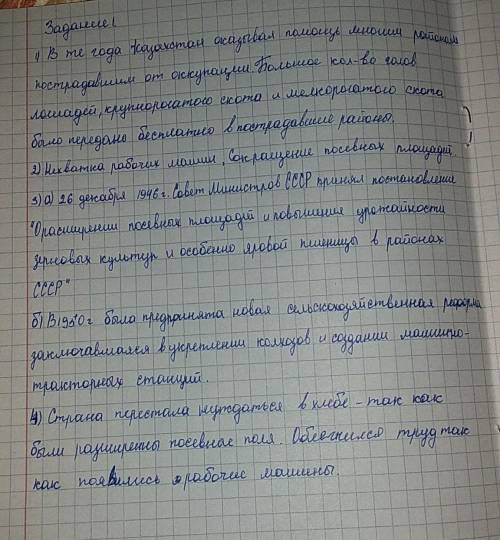 Задание 1
1) В те года Казахстан оказывал помощь многим районам
пострадавшим от оккупации. Большое кол-во голов
лошадей, крупнорогатого скота и мелкорогатого скота
было передано бесплатно в пострадавшие районы.
2) Нехватка рабочих машин, Сокращение посевных площадей.
3) а) 26 декабря 1946 г. Совет Министров СССР принял постановление
"О расширении посевных площадей и повышения урожайности
зерновых культур и особенно яровой пшеницы в районах
СССР"
б) В 1950 г была предпринята новая сельскохозяйственная реформа
заключавшаяся в укреплении колхозов и создании машинно-
тракторных станций.
4) Страна перестала нуждаться в хлебе - так как
были разширенны посевные поля. Облегчился труд так
как появились рабочие машины.